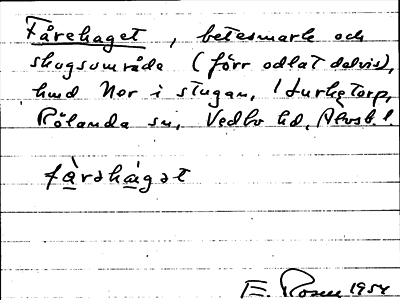 Fårehaget, betesmark och
skogsområde (förr odlat delvis),
hmd Nor i stugan, Hurketorp,
Rölanda sn, Vedbo hd, Älvsb. l.
fårəha̲gət
E. Rosen 1954